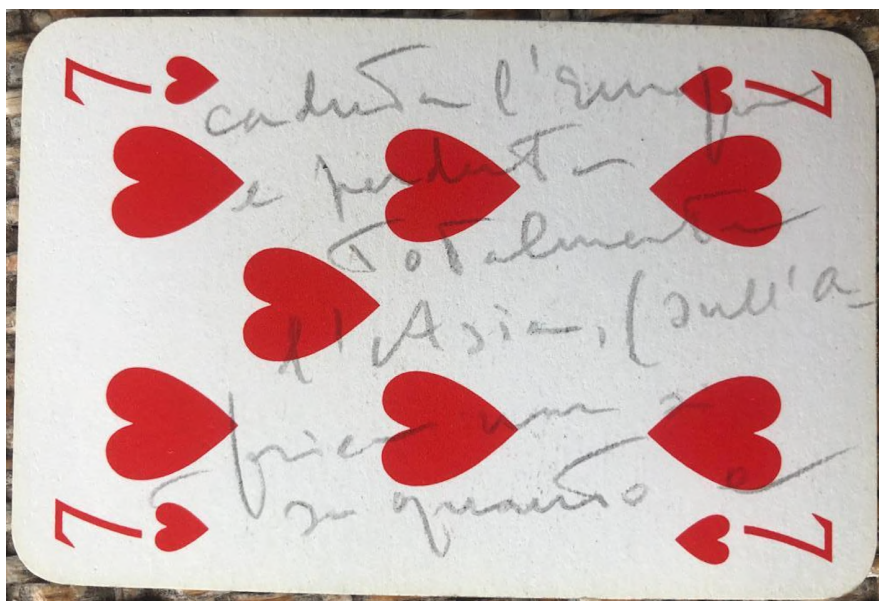 7 7
caduta l'Europa
e perduta
totalmente
l'Asia, (sull'a-
frica non si
sa quanto e
7 7